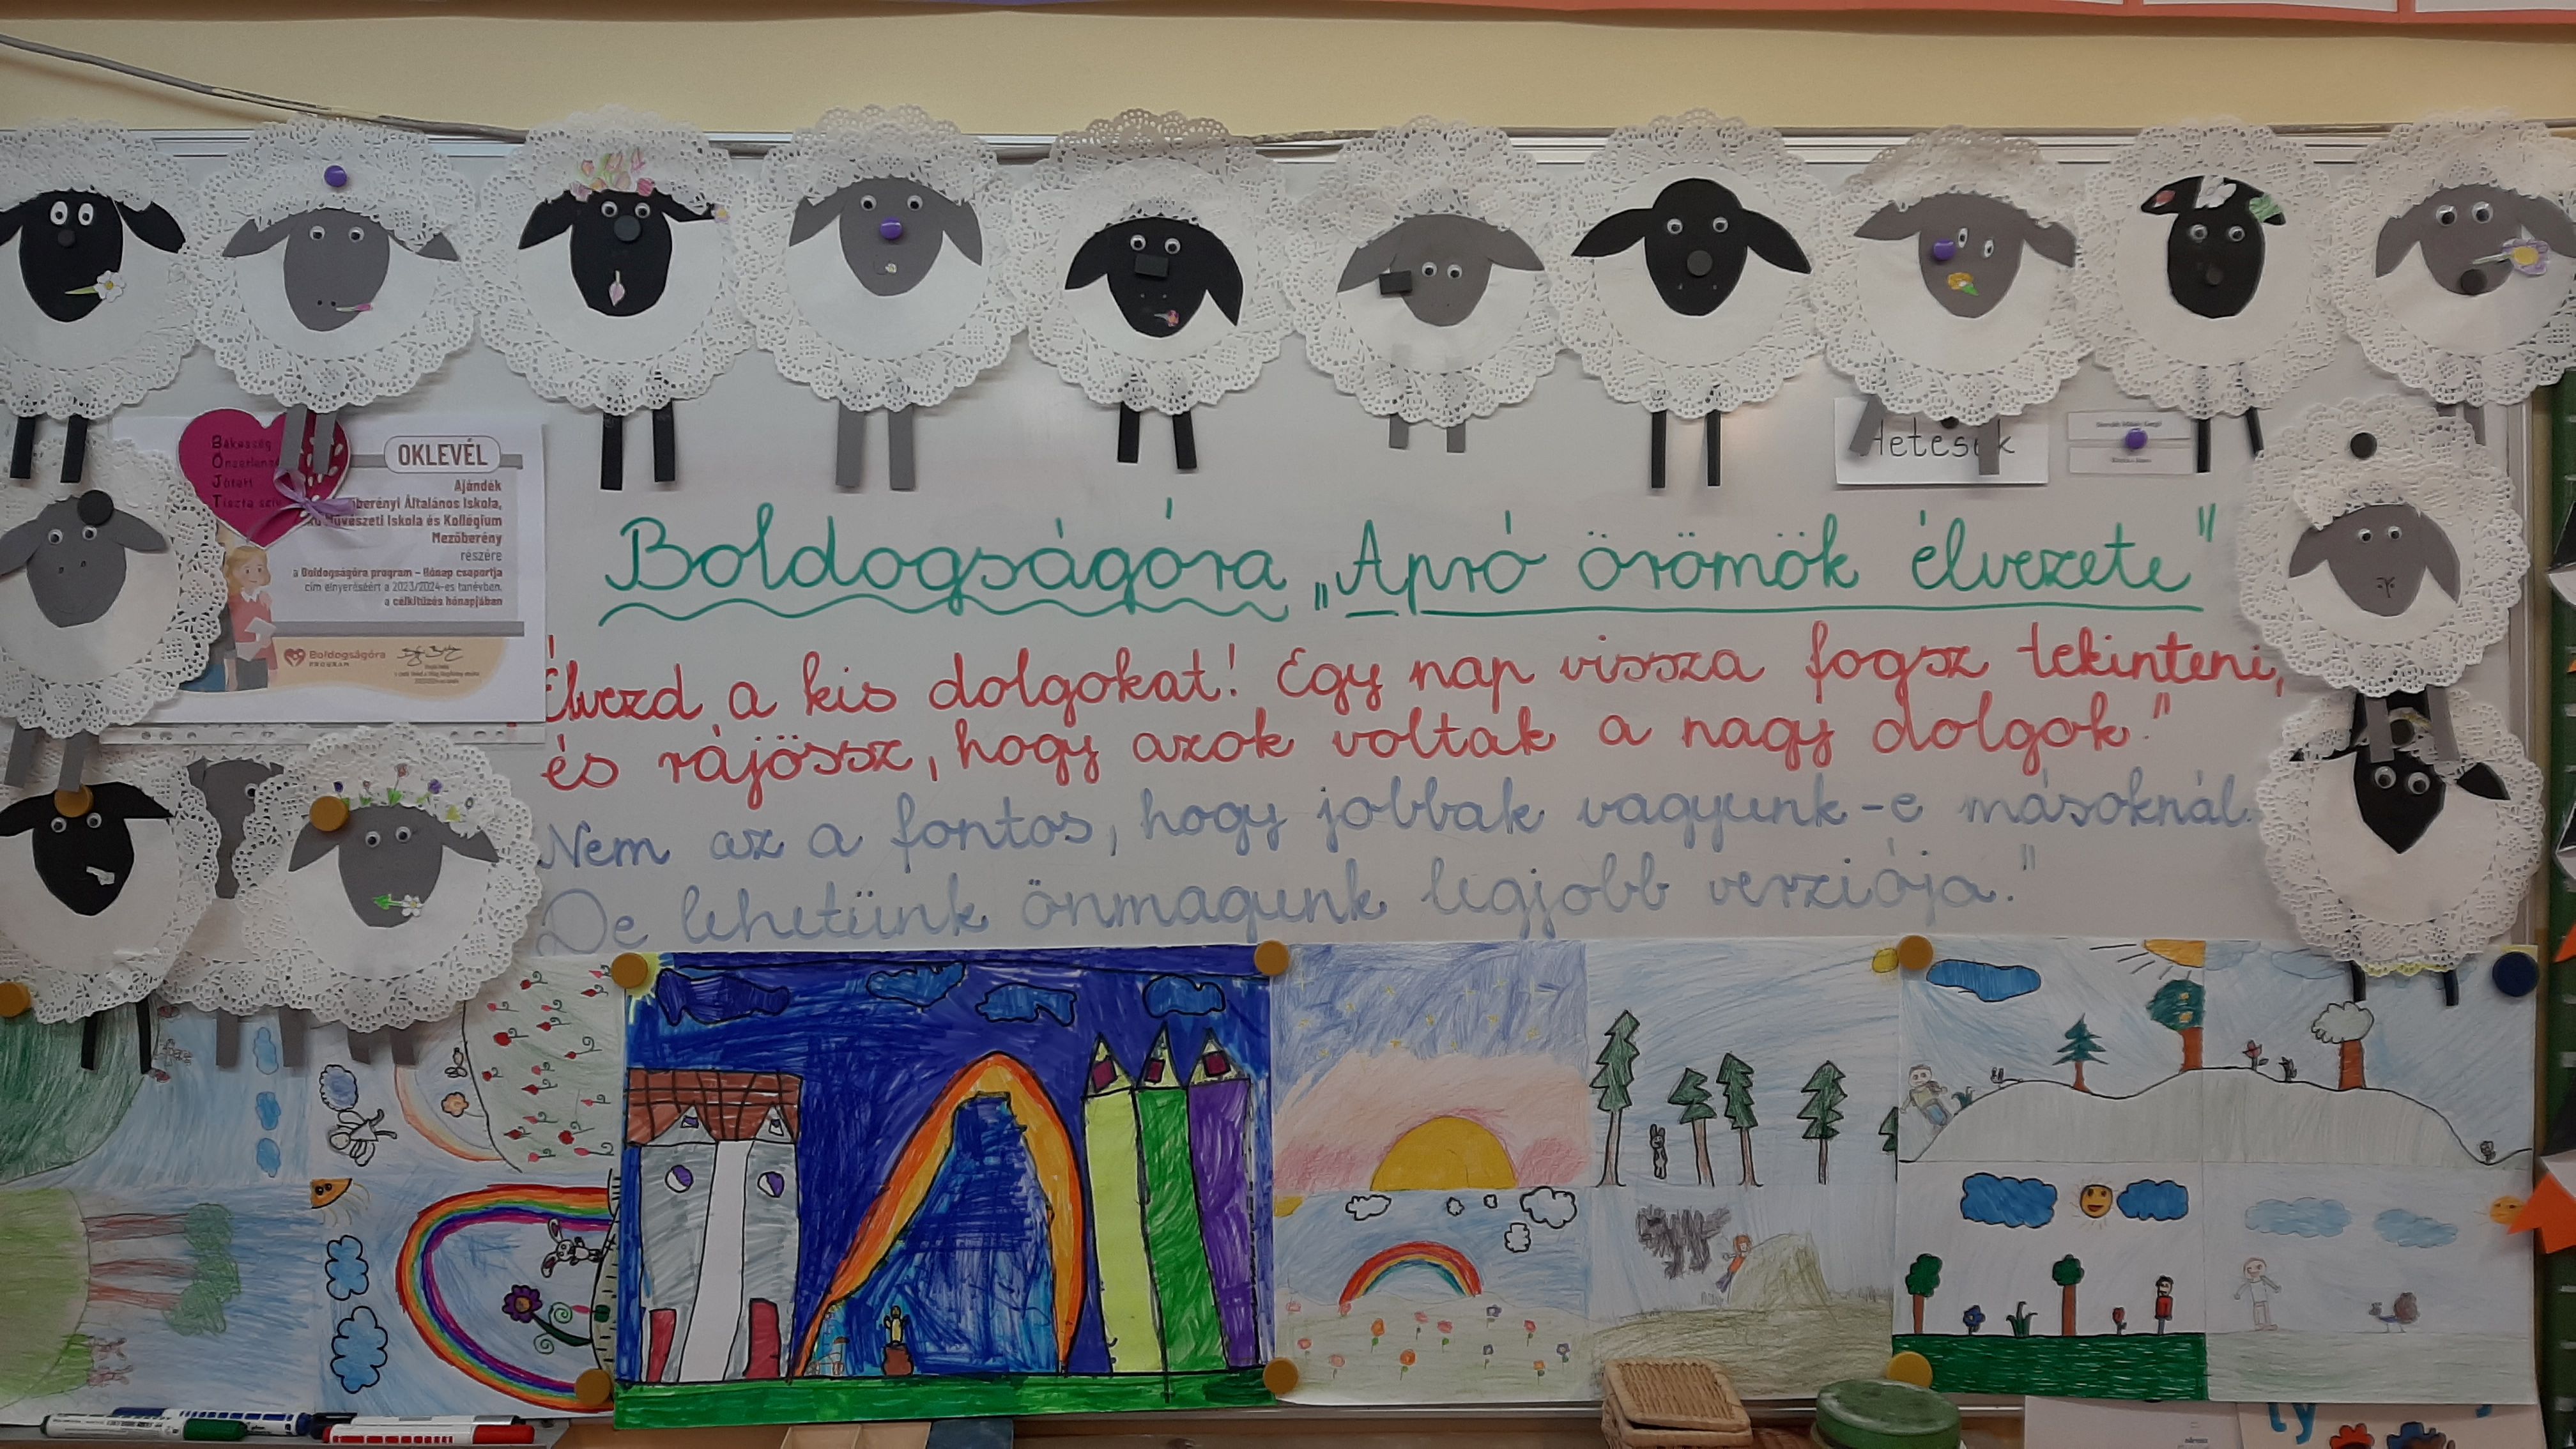 Bátorság
Önzetlen
Játék
Tiszta szív
OKLEVÉL
Ajándék
berényi Általános Iskola,
Művészeti Iskola és Kollégium
Mezőberény
részére
a Boldogságóra program – Hónap csoportja
cím elnyeréséért a 2023/2024-es tanévben,
a célkitűzés hónapjában
Boldogságóra
PROGRAM
Hetesek
Boldogságóra „Apró örömök élvezete"
Élvezd a kis dolgokat! Egy nap vissza fogsz tekinteni,
és rájössz, hogy azok voltak a nagy dolgok."
Nem az a fontos, hogy jobbak vagyunk-e másoknál.
De lehetünk önmagunk legjobb verziója."